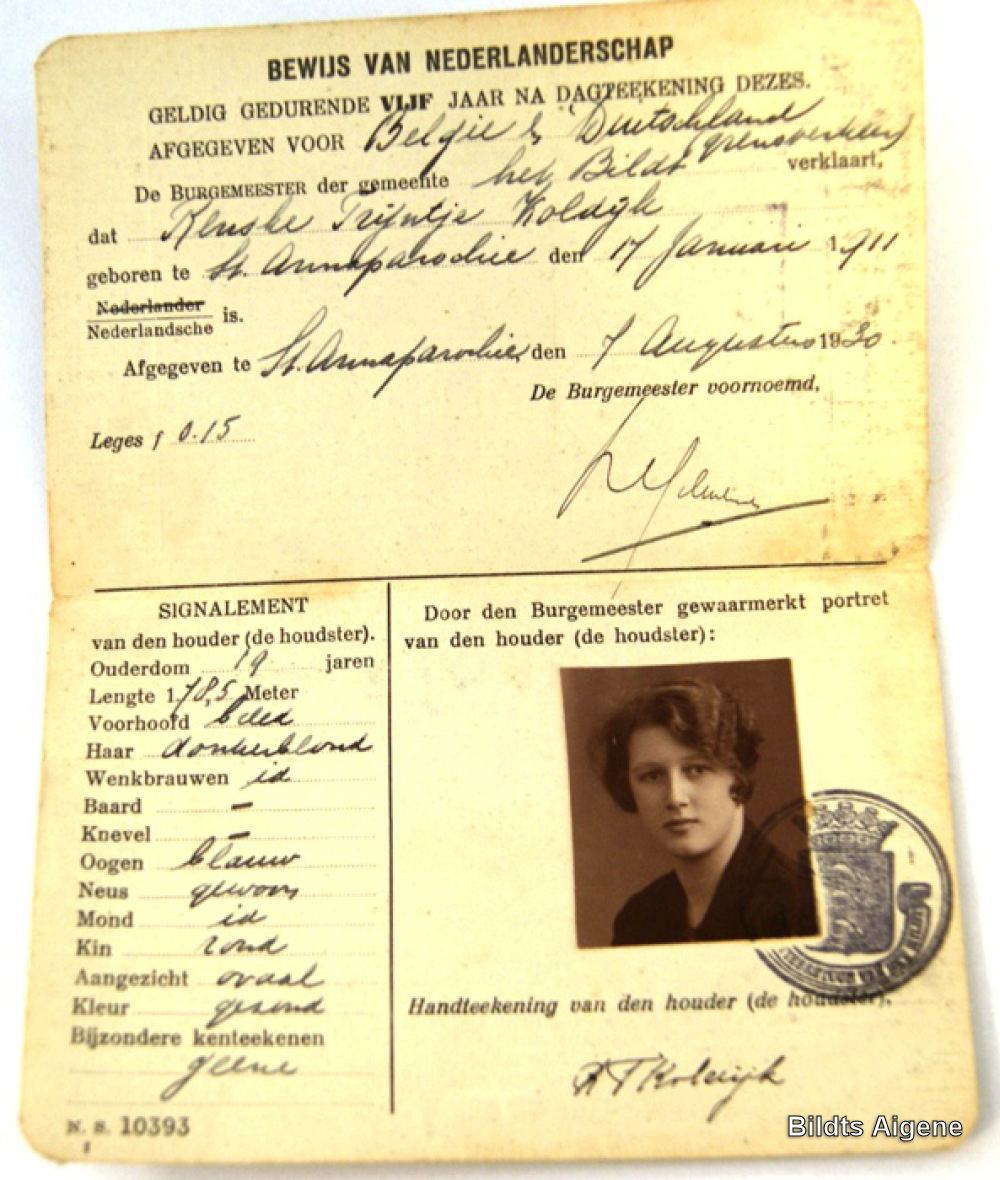 BEWIJS VAN NEDERLANDERSCHAP
GELDIG GEDURENDE VIJF JAAR NA DAGTEEKENING DEZES.
AFGEGEVEN VOOR Belgie & Duitschland
(grensverkeer)
De BURGEMEESTER der gemeente het Bildt verklaart,
dat Renske Trijntje Koldijk
geboren te St. Annaparochie den 17 Januari 1911
Nederlander
Nederlandsche is.
Afgegeven te St. Annaparochie, den 7 Augustus 1930.
De Burgemeester voornoemd,
Leges f 0.15
SIGNALEMENT
van den houder (de houdster).
Ouderdom 19 jaren
Lengte 1.78,5 Meter
Voorhoofd
Haar donkerblond
Wenkbrauwen id
Baard –
Knevel –
Oogen blauw
Neus gewoon
Mond id
Kin rond
Aangezicht ovaal
Kleur gezond
Bijzondere kenteekenen
geene
N. S. 10393
Door den Burgemeester gewaarmerkt portret
van den houder (de houdster):
Handteekening van den houder (de houdster).
R T Koldijk
Bildts Aigene